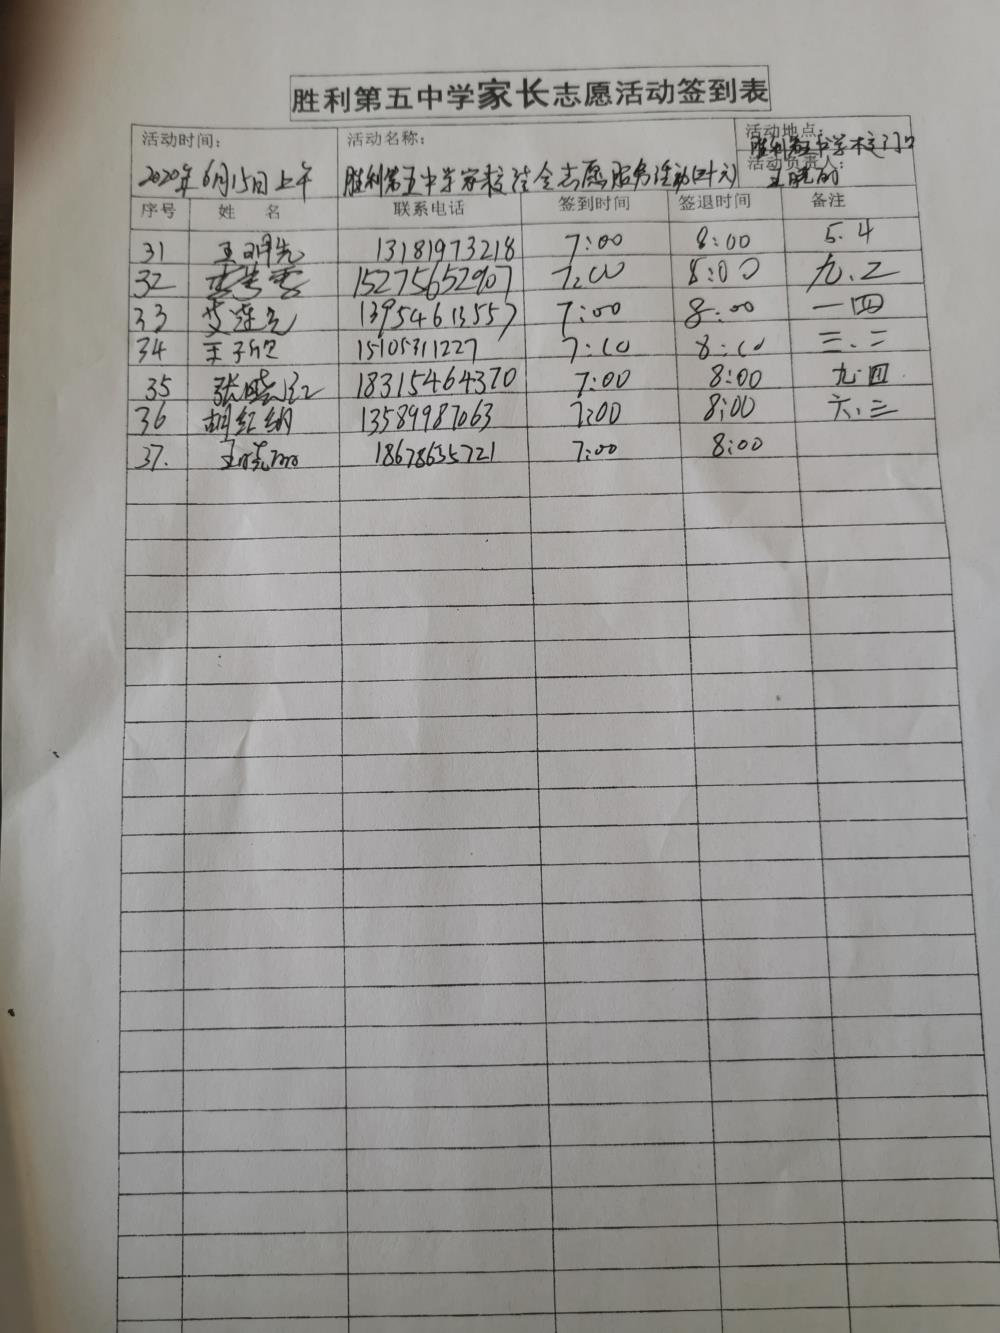 胜利第五中学家长志愿活动签到表
活动时间： 活动名称： 活动地点：
胜利第五中学校门口
2020年6月15日上午 胜利第五中学家校 会志愿服务活动(四十六) 活动负责人：
王晓丽
序号 姓 名 联系电话 签到时间 签退时间 备注
31 王明先 13181973218 7:00 8:00 5.4
32 15275652907 7:00 8:00 九.二
33 13954613557 7:00 8:00 一四
34 王子欣 15105311227 7:10 8:10 三.二
35 张晓红 18315464370 7:00 8:00 九.四
36 胡红娟 13589987063 7:00 8:00 六.三
37. 王晓丽 18678635721 7:00 8:00